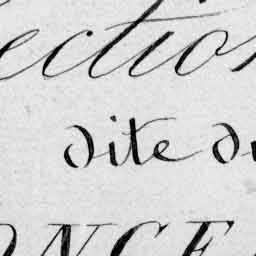 ection
dite du
ONCE